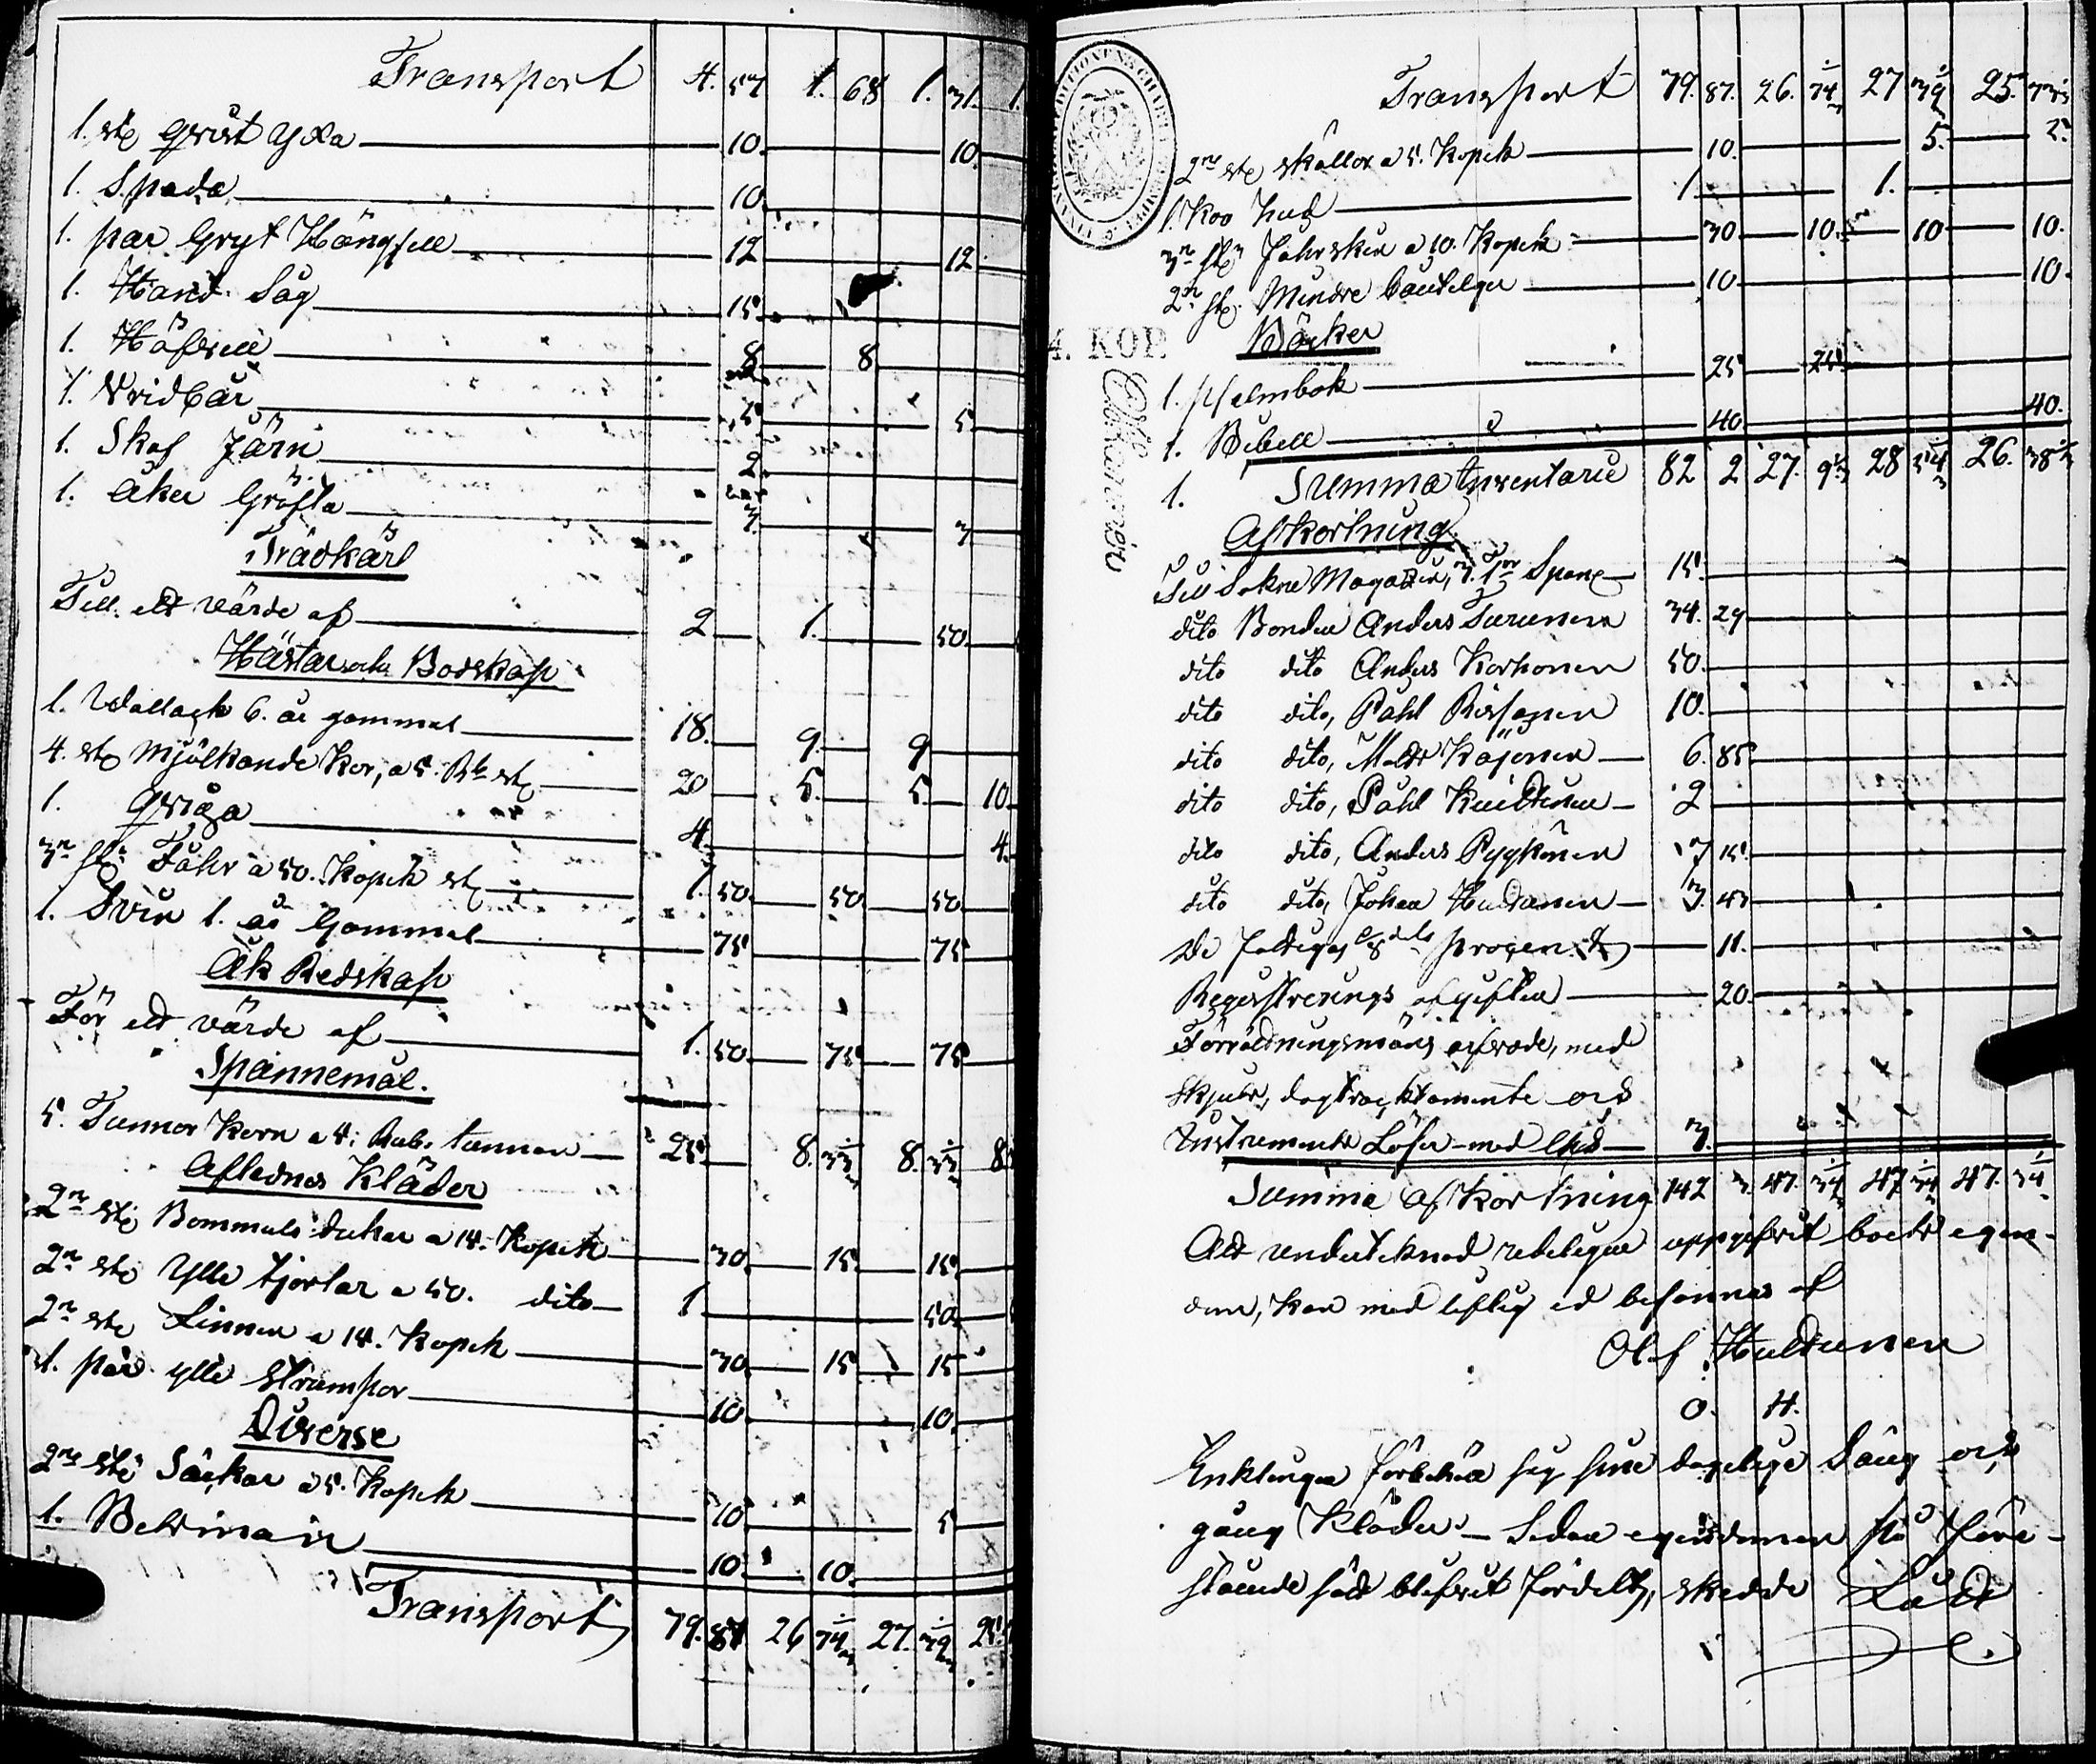 Transport 4. 57 1. 68 1. 31. 1.
1. st qvist Yxa 10. 10.
1. Spada 10.
1. par Gryt Hängsell 12 12
1. Hand Såg 15.
1. Höfvell 8 8
1. Vridbår 5 5
1. Skaf Järn 2.
1. Åker Gräfta 3. 3
Trädkärl
Till ett värde af 2 1. 50
Hästar och Bodskap
1. Wallack 6. år gammal 18. 9. 9
4. st Mjölkande Kor, a 5. Rb st 20 5. 5. 10
1. qviga 4. 4.
3ne st Fåhr a 50. Kopek st 1. 50 50 50
1. Svin 1. år Gammal 75 75
Åk Redskap
För ett värde af 1. 50 75 75
Spannemål.
5. Tunnor Korn a 5. Rub. tunnan 25 8. 33 8. 33 8.
Aflednes Kläder
2ne st Bommuls dukar a 15. Kopek 30. 15. 15.
2ne st Ylle tjortlar a 50. dito 1 50.
2ne st Linnen a 15. Kopek 30. 15 15
1. par ylle Strumpor 10 10.
Diverse
2ne st Säckar a 5. Kopek 10 5
1. Betsman 10. 10.
Transport 79. 87 26 74 27. 39 25.
Transport 79. 87. 26. 74 27 39 25.
2ne st skållor a 5. Kopek 10. 5. 5.
1. Koo hud 1. 1.
3ne st Fåhrskin a 10. Kopek 30 10. 10 10.
2ne st Mindre bouteljer 10 10.
4. KOP.
Böcker
1. Psalmbok 25 25
1. Bibell 40 40.
1. Summa Inventarie 82 2 27. 9 28 54 26. 38
Afkortning
Till Sokne Magazin, 3. Tnr Spanl 15.
dito Bonden Anders Turunen 34. 29
dito dito Anders Korhonen 50.
dito dito, Påhl Rissanen 10.
dito dito, Matts Kajonen 6. 85
dito dito, Påhl Huldunen 2
dito dito, Anders Pyykönen 7 15.
dito dito, Johan Huldunen 3. 43
De Fattigas 1/8 dels procent 11.
Registrerings afgiften 20.
Förrättningsmäns arfvode, med
Skjuts, dagtracktamente och
Instrumente Lösen med Ehd 3.
Summa Afkortning 142 3. 47. 34 47 34 47. 34
Att undertecknad redeligen uppgifvit boets egen-
dom, kan med liflig ed besannas af
Olof Huldunen
O. H.
Enklingen förbehöll sig sine dagelige Säng och
gång Kläder. Sedan egendomen på före-
stående sätt blifvit fördelt, skedde